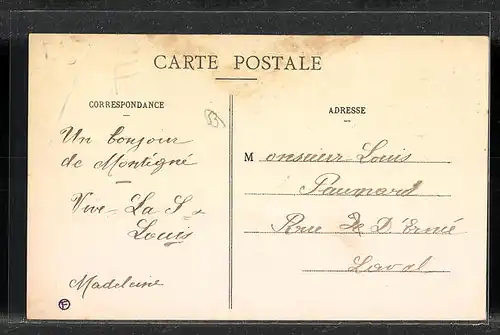 CARTE POSTALE
CORRESPONDANCE
ADRESSE
53
Un bonjour
de Montigné
Vive La St
Louis
Madeleine
Monsieur Louis
Paumard
Rue De D'Ernée
Laval
F